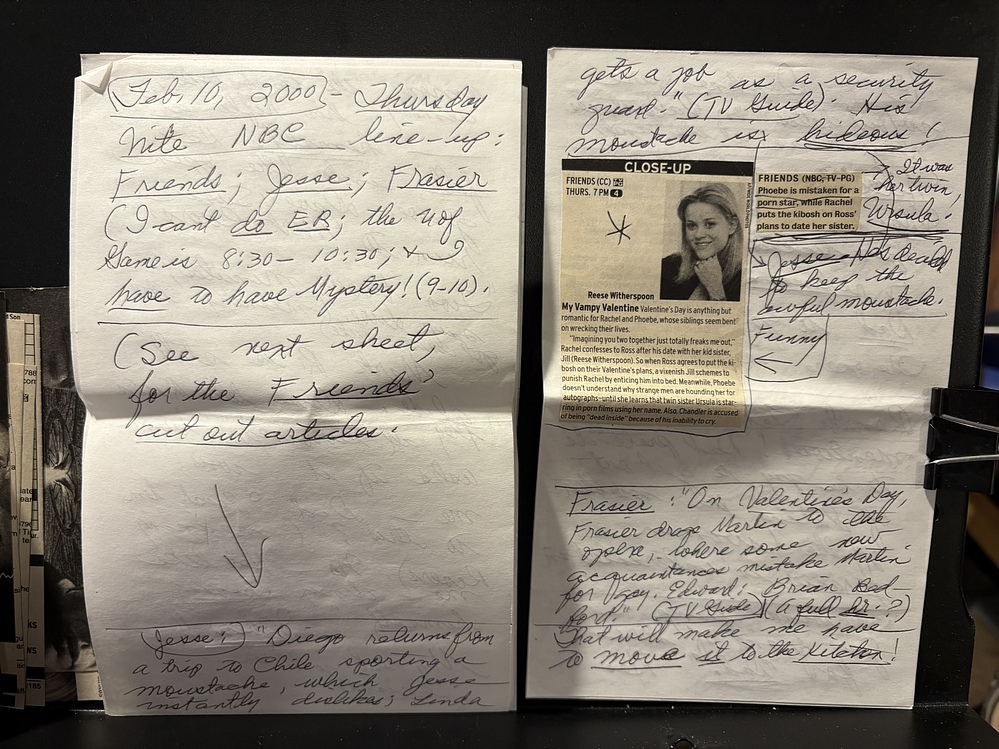 Feb. 10, 2000 - Thursday
Nite NBC line-up:
Friends; Jesse; Frasier
(I can't do ER; the U of
Game is 8:30 - 10:30; & I
have to have Mystery! (9-10).
(See next sheet,
for the Friends
cut out articles.
Jesse: "Diego returns from
a trip to Chile sporting a
moustache, which Jesse
instantly dislikes; Linda
gets a job as a security
guard." (TV Guide). His
moustache is hideous!
CLOSE-UP
FRIENDS (CC) PG
THURS. 7 PM 4
Reese Witherspoon
My Vampy Valentine Valentine's Day is anything but
romantic for Rachel and Phoebe, whose siblings seem bent
on wrecking their lives.
"Imagining you two together just totally freaks me out,"
Rachel confesses to Ross after his date with her kid sister,
Jill (Reese Witherspoon). So when Ross agrees to put the ki-
bosh on their Valentine's plans, a vixenish Jill schemes to
punish Rachel by enticing him into bed. Meanwhile, Phoebe
doesn't understand why strange men are hounding her for
autographs–until she learns that twin sister Ursula is star-
ring in porn films using her name. Also, Chandler is accused
of being "dead inside" because of his inability to cry.
FRIENDS (NBC, TV-PG)
Phoebe is mistaken for a
porn star, while Rachel
puts the kibosh on Ross'
plans to date her sister.
It was
her twin
Ursula!
Jesse
to keep the
awful moustache.
Funny
Frasier: "On Valentine's Day,
Frasier drags Martin to the
opera, where some new
acquaintances mistake Martin
for gay. Edward: Brian Bed
ford." (TV Guide) (A full hr.?)
That will make me have
to move it to the Kitchen!